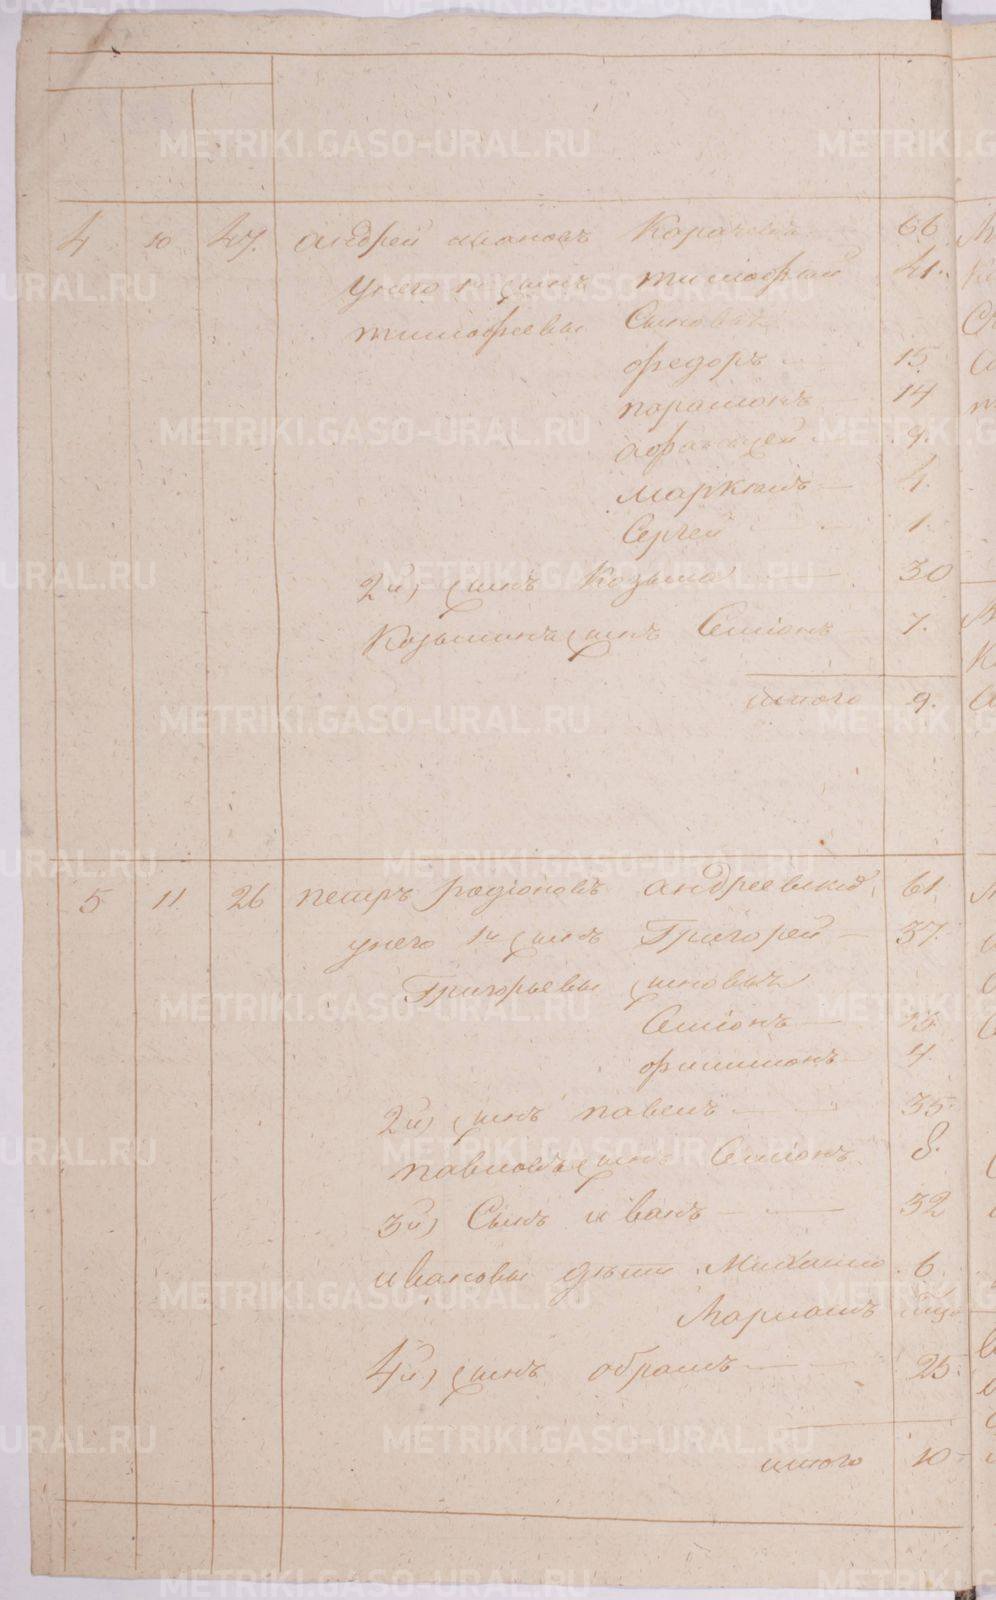 METRIKI.GASO-URAL.RU
4 10 47. андрей ивановъ Карачевъ 66
унего 1й сынъ тимофей 41.
тимофеевы Сыновья
федоръ 15
парамонъ 14
9.
4.
Сергей 1.
2й, сынъ Козьма 30
Козьминъ сынъ Семіонъ 7.
итого 9.
5 11 26 петръ родіоновъ андреевыхъ 61.
унего 1й сынъ Григорей 37.
Григорьевы сыновья
Семіонъ 13
филимонъ 4.
2й, сынъ павелъ 35.
павловъ сынъ Семіонъ 8.
3й, Сынъ иванъ 32
ивановы дѣти Михаило 6.
4й, сынъ обрамъ 25.
итого 10